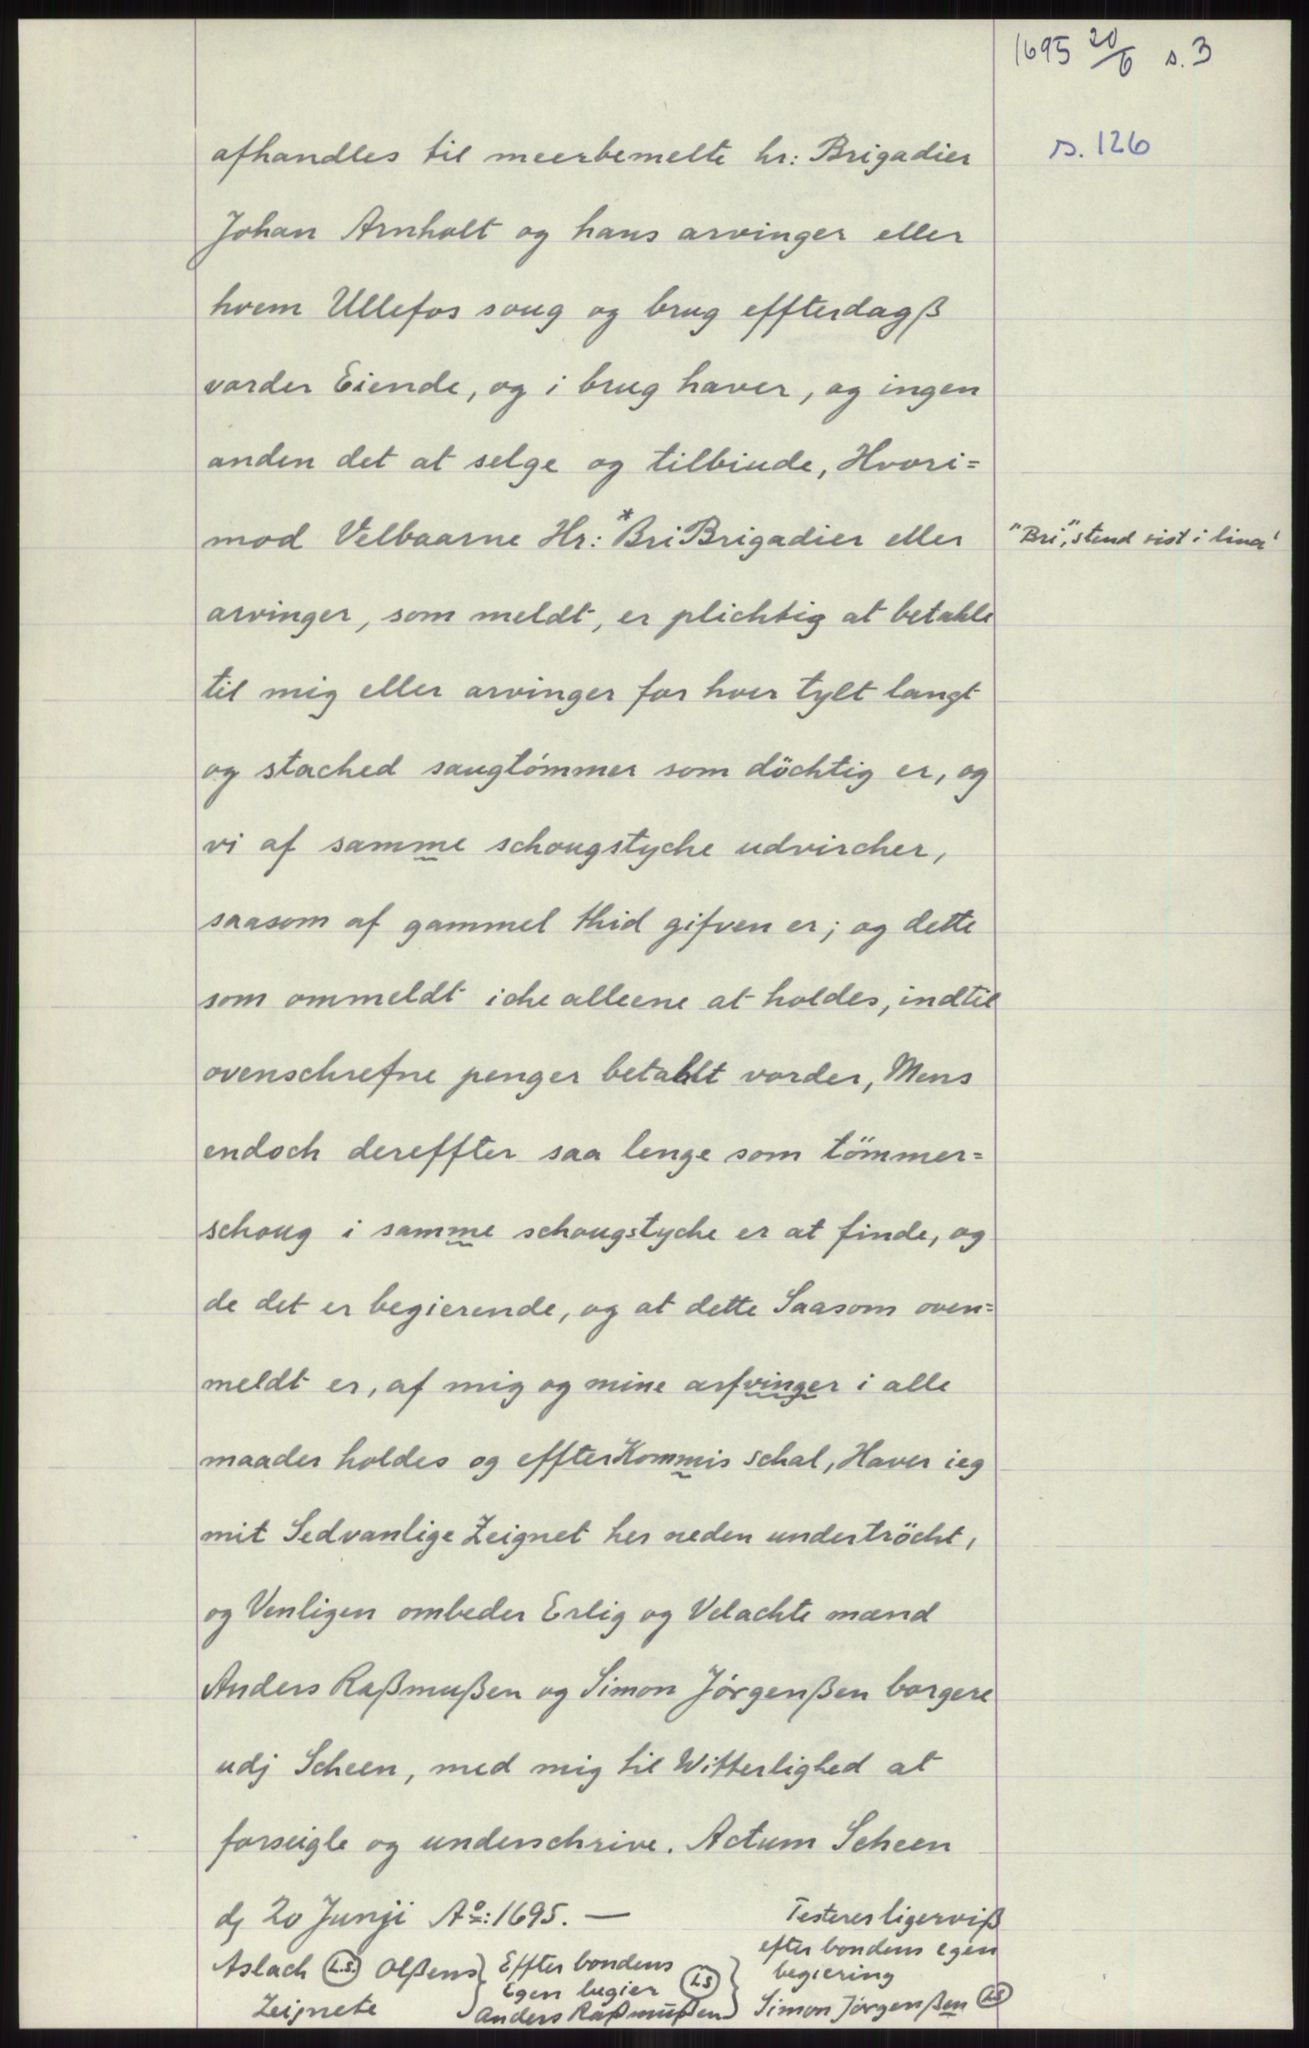 1695 20/6 s. 3
s. 126
afhandles til meerbemelte hr: Brigadier
Johan Arnholt og hans arvinger eller
hvem Ullefos soug og brug effterdagß
vorder Eiende, og i brug haver, og ingen
anden det at selge og tilbiude, Hvori=
mod Velbaarne Hr: *Bri Brigadier eller
"Bri", stend sist i lina!
arvinger, som meldt, er plichtig at betahle
til mig eller arvinger for hver tylt langt
og stached saugtömmer som döchtig er, og
vi af samme schougstyche udvircher,
saasom af gammel thid gifven er; og dette
som ommeldt iche alleene at holdes, indtil
ovenschrefne penger betahlt vorder, Mens
endoch dereffter saa lenge som tömmer=
schoug i samme schougstyche er at finde, og
de det er begierende, og at dette Saasom oven=
meldt er, af mig og mine arfvinger i alle
maader holdes og effterKommis schal, Haver ieg
mit Sedvanlige Zeignet her neden undertröcht,
og Venligen ombeder Erlig og Velachte mænd
Anders Raßmußen og Simon Jörgenßen borgere
udj Scheen, med mig til Witterlighed at
forseigle og underschrive. Actum Scheen
dj 20 Junji Ao: 1695. —
Aslach (L.S.) Olßens
Zeignete
Effter bondens
Egen begier (LS)
Anders Raßmußen
Testeres ligerviß
efter bondens egen
begiering
Simon Jörgenßen (LS)